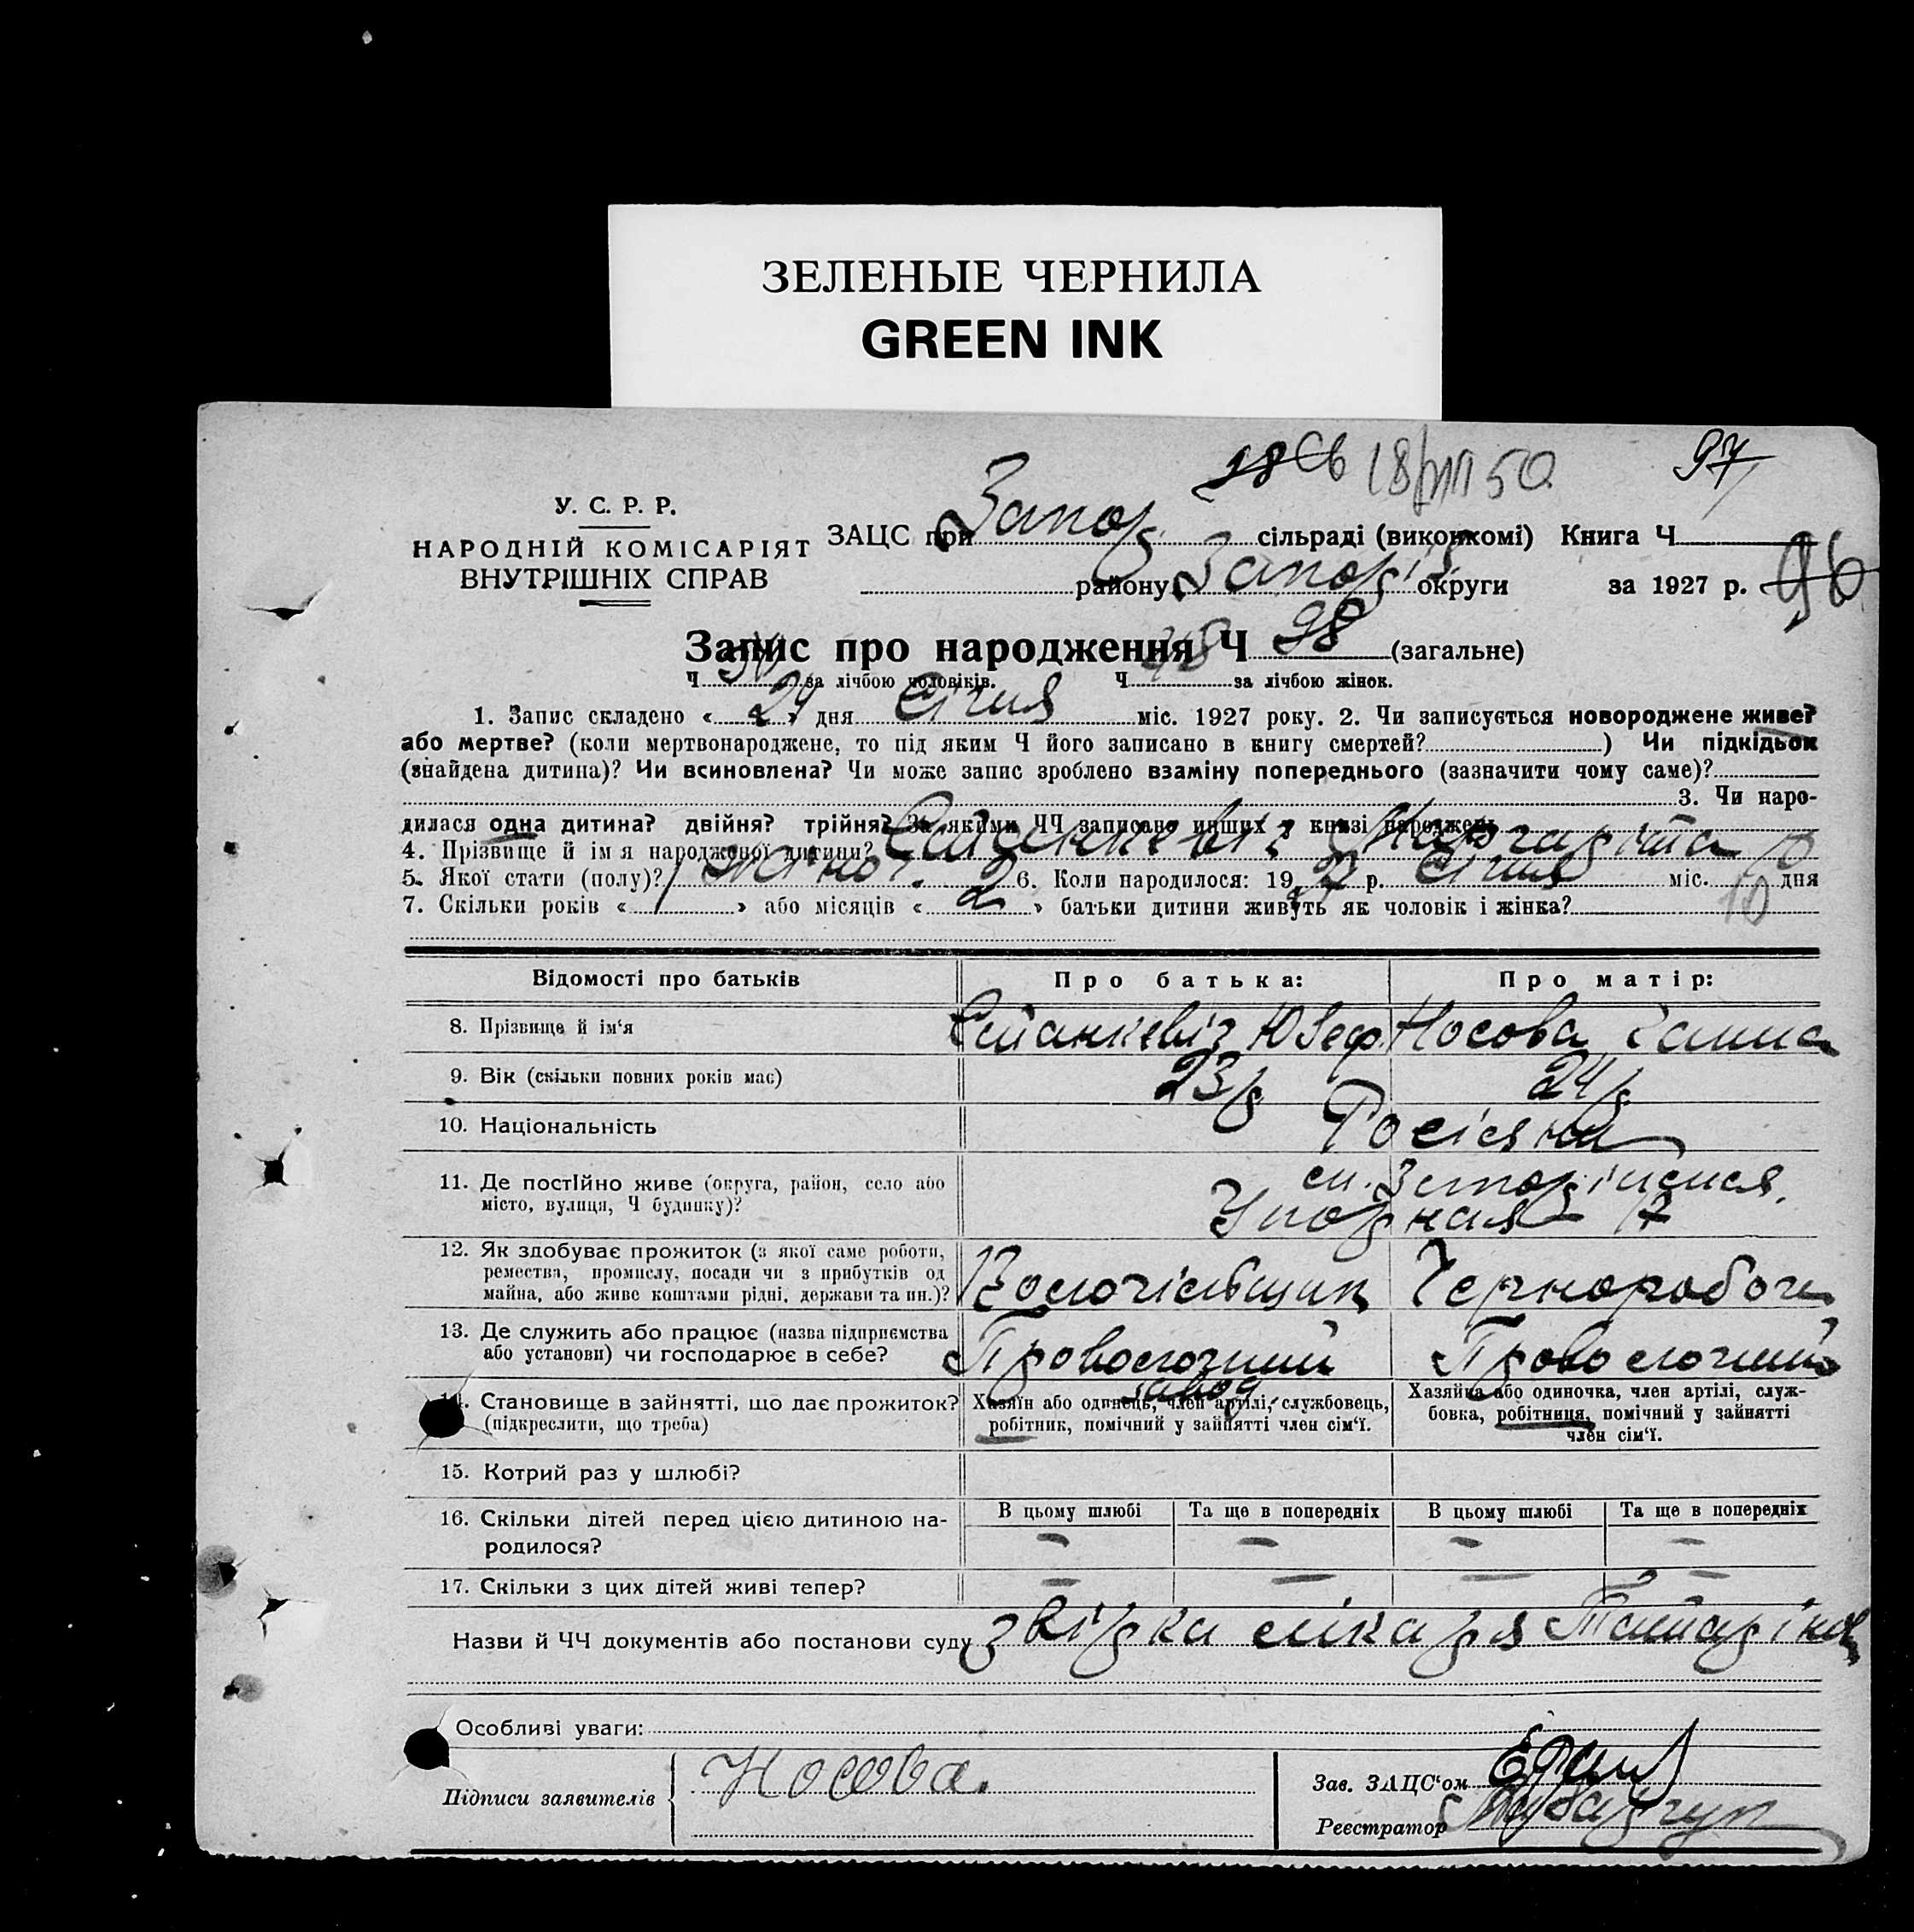 ЗЕЛЕНЫЕ ЧЕРНИЛА
GREEN INK
97
У. С. Р. Р.
НАРОДНІЙ КОМІСАРІЯТ
ВНУТРІШНІХ СПРАВ
ЗАЦС при Запор. сільраді (виконкомі) Книга Ч
району Запоріз. округи за 1927 р. 96
Запис про народження Ч 98 (загальне)
Ч за лічбою чоловіків. Ч 48 за лічбою жінок.
1. Запис складено « 24 » дня Січня міс. 1927 року. 2. Чи записується новороджене живе?
або мертве? (коли мертвонароджене, то під яким Ч його записано в книгу смертей? ) Чи підкідьок
(знайдена дитина)? Чи всиновлена? Чи може запис зроблено взаміну попереднього (зазначити чому саме)?
3. Чи наро-
дилася одна дитина? двійня? трійня? За якими ЧЧ записано инших в книзі народжень
4. Прізвище й ім я народженої дитини? Маргаріта
5. Якої стати (полу)? жіноч. 6. Коли народилось: 19 27 р. Січня міс. 10 дня
7. Скільки років « / » або місяців « 2 » батьки дитини живуть як чоловік і жінка?
Відомості про батьків
Про батька:
Про матір:
8. Прізвище й ім‘я
Юзеф
Носова Ганна
9. Вік (скільки повних років має)
23 р.
24 р.
10. Національність
Росіяни
11. Де постійно живе (округа, район, село або
місто, вулиця, Ч будинку)?
Упорная 17
12. Як здобуває прожиток (з якої саме роботи,
ремества, промислу, посади чи з прибутків од
майна, або живе коштами рідні, держави та ин.)?
Чорноробоча
13. Де служить або працює (назва підприємства
або установи) чи господарює в себе?
Проволочний
завод
Проволочний
14. Становище в зайнятті, що дає прожиток?
(підкреслити, що треба)
Хазяїн або одинець, член артілі, службовець,
робітник, помічний у зайнятті член сім‘ї.
Хазяйка або одиночка, член артілі, служ-
бовка, робітниця, помічний у зайнятті
член сім‘ї.
15. Котрий раз у шлюбі?
16. Скільки дітей перед цією дитиною на-
родилося?
В цьому шлюбі
Та ще в попередніх
В цьому шлюбі
Та ще в попередніх
— — — —
17. Скільки з цих дітей живі тепер?
— — — —
Назви й ЧЧ документів або постанови суду звірка лікаря
Особливі уваги:
Підписи заявителів
Носова.
Зав. ЗАЦС‘ом
Реєстратор